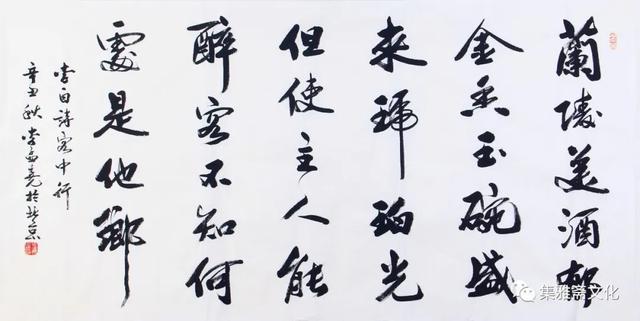 蘭陵美酒郁
金香玉碗盛
来琥珀光
但使主人能
醉客不知何
處是他鄉
李白詩客中行
辛丑秋李孟堯於北京
集雅斋文化